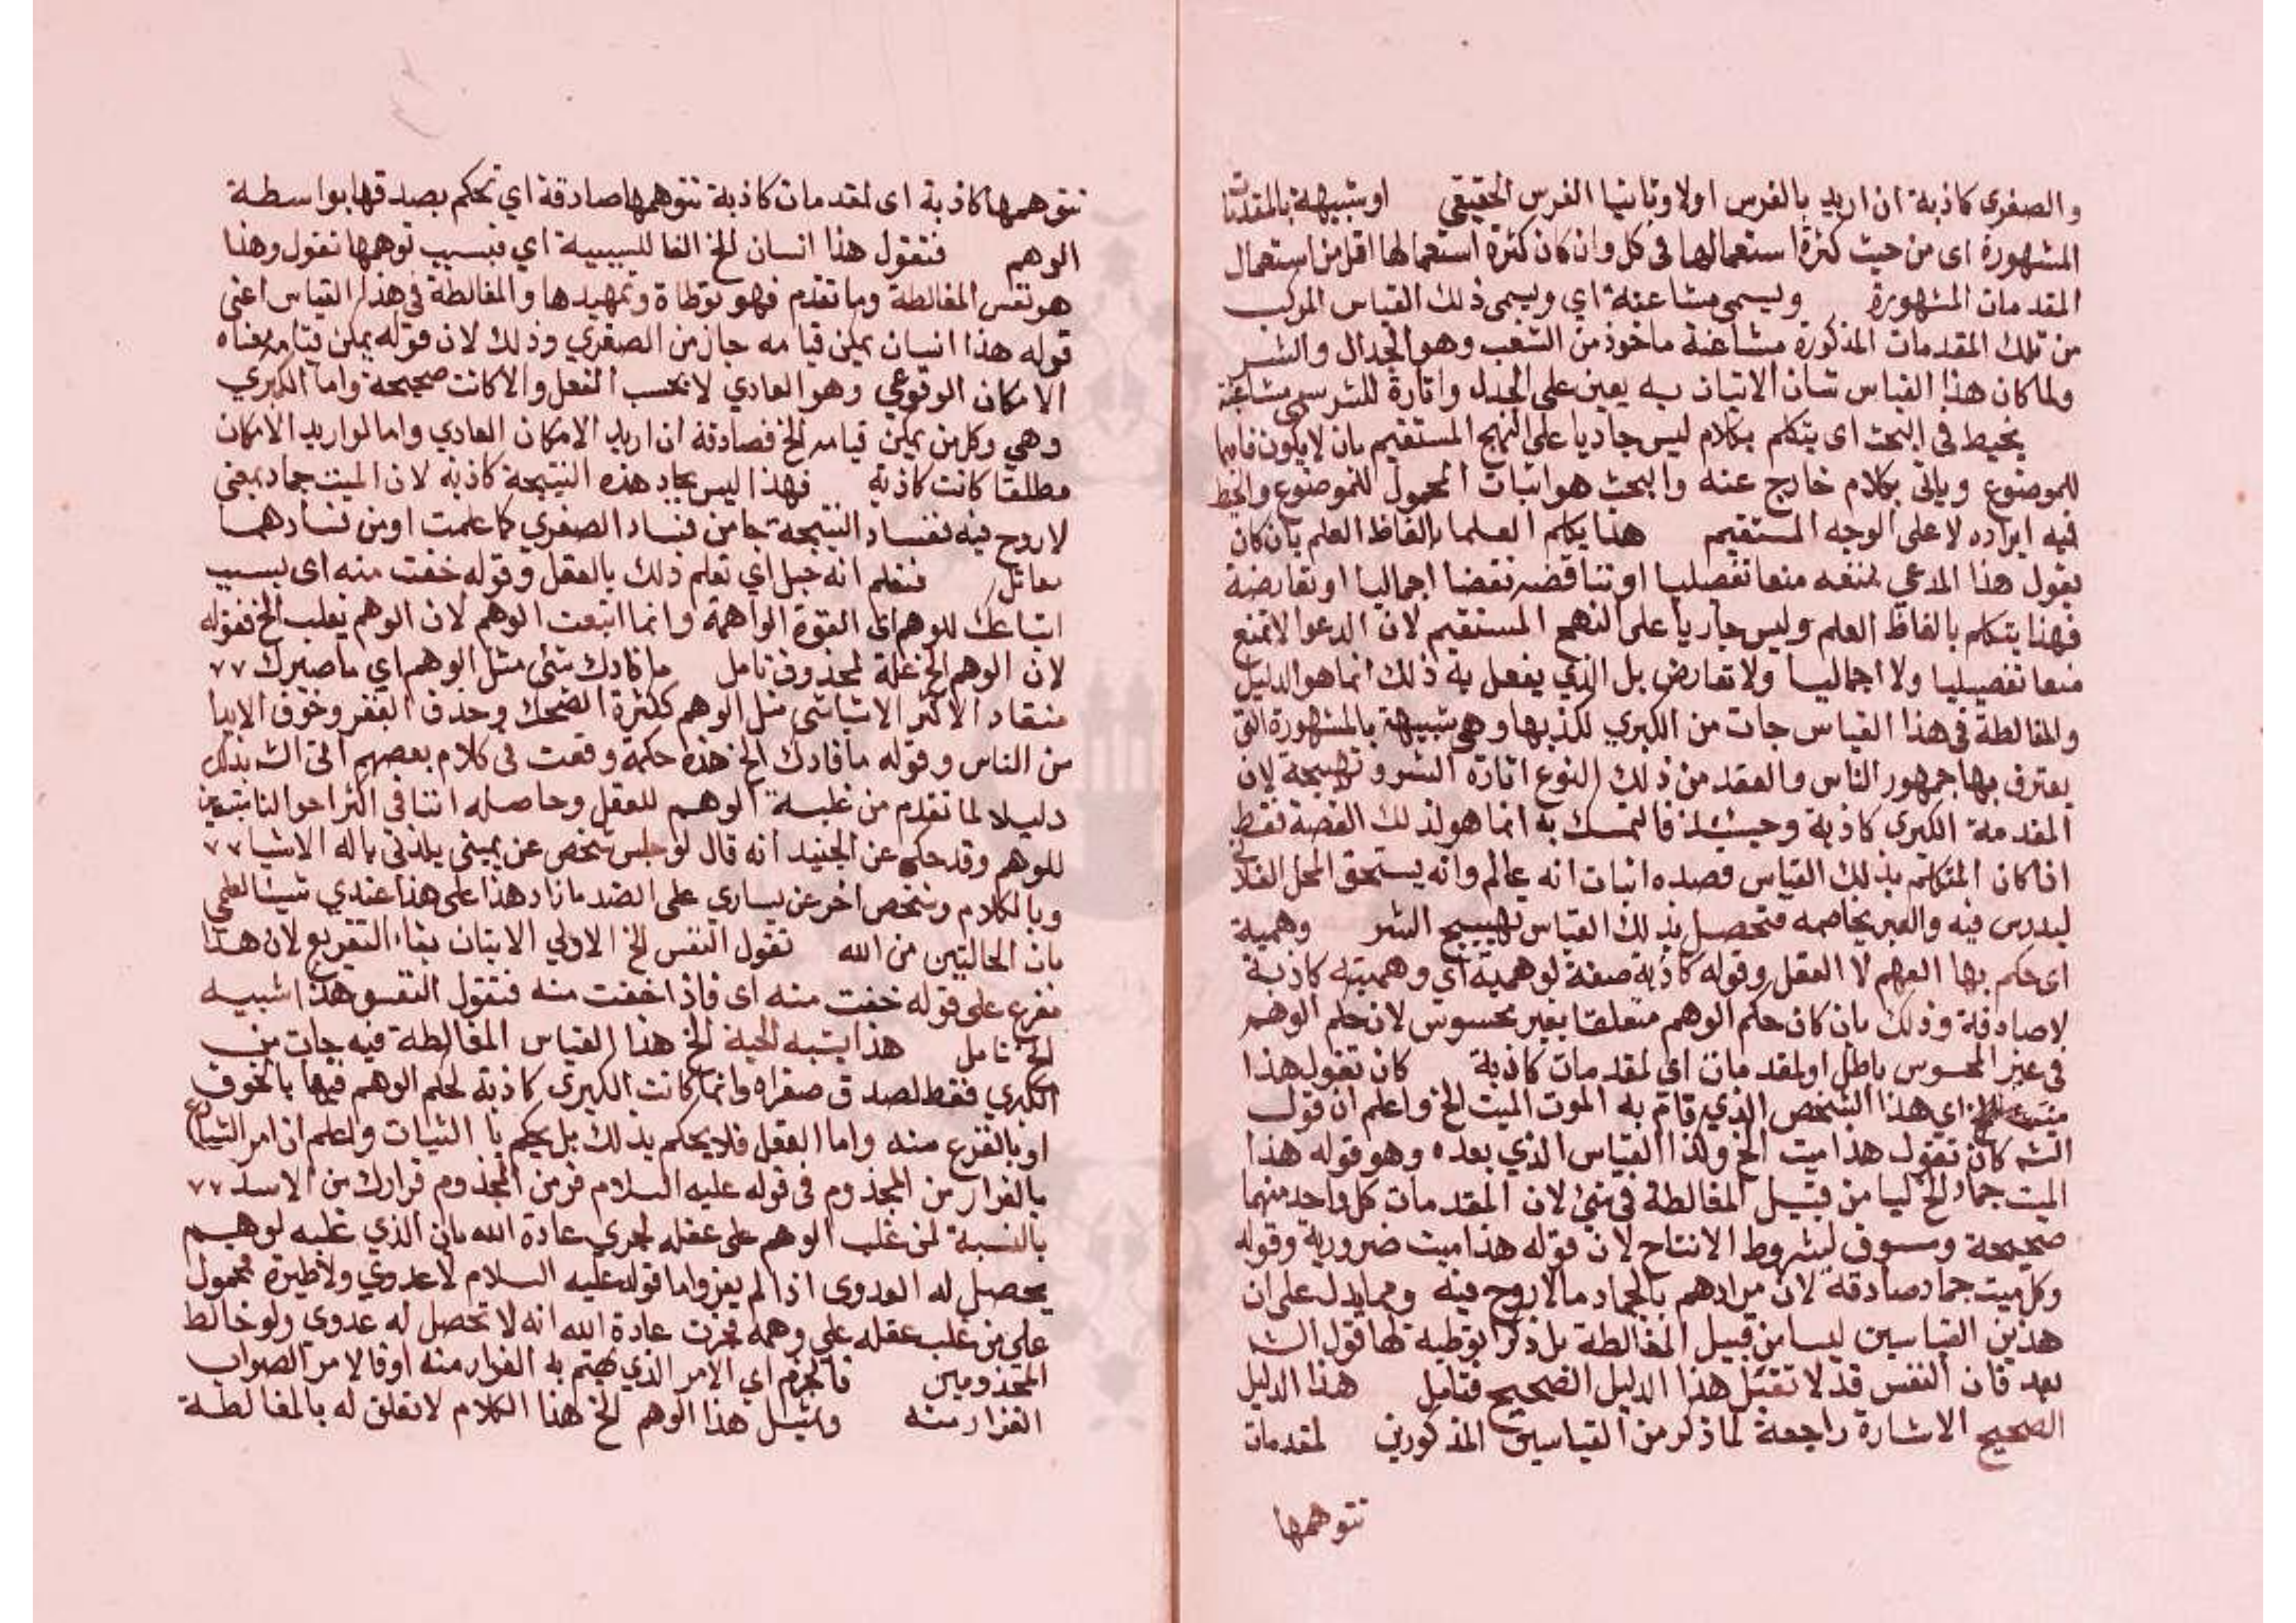 والصغرى كاذبة ان اريد بالفرس اولا وثانيا الفرس الحقيقي او شبيهة بالمقدمات
المشهورة اى من حيث كثرة استعمالها فى كل وان كان كثرة استعمالها اقل من استعمال
المقدمات المشهورة ويسمى مشاغبة اي ويسمى ذلك القياس المركب
من تلك المقدمات المذكورة مشاغبة ماخوذ من الشغب وهو الجدال والشر
ولما كان هذا القياس شان الاتيان به يعين على الجدل واثارة للشر سمى مشاغبة
يخبط فى البحث اى يتكلم بكلام ليس جاريا على النهج المستقيم بان لا يكون
للموضوع وياتى بكلام خارج عنه والبحث هو اثبات المحمول للموضوع والخبط
فيه ايراده لا على الوجه المستقيم هذا يكلم العلما بالفاظ العلم بان كان
يقول هذا المدعي نمنعه منعا تفصيليا او تناقضه نقضا اجماليا او تعارضة
فهذا يتكلم بالفاظ العلم وليس جاريا على النهج المستقيم لان الدعوا لا تمنع
منعا تفصيليا ولا اجماليا ولا تعارض بل الذي يفعل به ذلك انما هو الدليل
والمغالطة فى هذا القياس جات من الكبري لكذبها وهى شبيهة بالمشهورة التى
يعترف بها جمهور الناس والقصد من ذلك النوع اثارة الشر وتهييجه لان
المقدمة الكبرى كاذبة وحينئذ فالتمسك به انما هو لذلك القصة فقط
اذا كان المتكلم بذلك القياس قصده اثبات انه عالم وانه يستحق المحل الفلانى
ليدرس فيه والغير يخاصمه فتحصل بذلك القياس تهييج الشر وهمية
اى حكم بها الوهم لا العقل وقوله كاذبة صفة لوهمية اي وهميته كاذبة
لا صادقة وذلك بان كان حكم الوهم متعلقا بغير محسوس لان حكم الوهم
فى غير المحسوس باطل او لمقدمات اي لمقدمات كاذبة كان تقول هذا
ميت الخ اى هذا الشخص الذي قام به الموت الميت الخ واعلم ان قول
الش كان تقول هذا ميت الخ ولذا القياس الذي بعده وهو قوله هذا
الميت جماد الخ ليسا من قبيل المغالطة فى شئ لان المقدمات كل واحد منهما
صحيحة ومستوف لشروط الانتاج لان قوله هذا ميت ضرورية وقوله
وكل ميت جماد صادقة لان مرادهم بالجماد ما لا روح فيه ومما يدل على ان
هذين القياسين ليسا من قبيل المغالطة بل ذكرا توطية لها قول الش
بعد فان النفس قد لا تقبل هذا الدليل الصحيح فتامل هذا الدليل
الصحيح الاشارة راجعة لما ذكر من القياسين المذكورين لمقدمات
تتوهمها
تتوهمها كاذبة اى لمقدمات كاذبة تتوهمها صادقة اي تحكم بصدقها بواسطة
الوهم فتقول هذا انسان الخ الفا للسببية اي فبسبب توهمها تقول وهذا
هو نفس المغالطة وما تقدم فهو توطاة وتمهيد لها والمغالطة فى هذا القياس اعنى
قوله هذا انسان يمكن قيامه جاز من الصغري وذلك لان قوله يمكن قيامه معناه
الامكان الوقوعي وهو العادي لا بحسب الفعل والا كانت صحيحة واما الكبري
وهي وكل من يمكن قيامه الخ فصادقة ان اريد الامكان العادي واما لو اريد الامكان
مطلقا كانت كاذبة فهذا ليس بجاد هذه النتيجة كاذبة لان الميت جماد بمعنى
لا روح فيه ففساد النتيجة جا من فساد الصغري كما علمت او من فسادهما
فنعلم انه حبل اي تعلم ذلك بالعقل وقوله خفت منه اى بسبب
اتباعك للوهم اى القوة الواهمة وانما اتبعت الوهم لان الوهم يغلب الخ فقوله
لان الوهم الخ علة لمحذوف تامل ما قادك شئ مثل الوهم اي ما صيرك ٧٧
منقاد الاكثر الاشيا شى مثل الوهم ككثرة الضحك وخوف الفقر وخوف الايذا
من الناس وقوله ما قادك الخ هذه حكمة وقعت فى كلام بعضهم اتى الش بذلك
دليلا لما تقدم من غلبة الوهم للعقل وحاصله اننا فى اكثر احوالنا تابعين
للوهم وقد حكى عن الجنيد انه قال لو جلس شخص عن يمينى يلذنى باله الاشيا ٧٧
وبالكلام وشخص اخر عن يساري على الضد ما زاد هذا على هذا عندي شيئا لعلمي
بان الحالتين من الله تقول النفس الخ الاولي الاتيان بفاء التفريع لان هذا
مفرع على قوله خفت منه اى فاذا خفت منه فتقول النفس هذا شبيه
الخ تامل هذا يشبه الحية الخ هذا القياس المغالطة فيه جات من
الكبري فقط لصدق صغراه وانما كانت الكبرى كاذبة لحكم الوهم فيها بالخوف
او بالفزع منه واما العقل فلا يحكم بذلك بل يحكم با الثبات ولعلم ان امر الشارع
بالفرار من المجذوم فى قوله عليه السلام فر من المجذوم فرارك من الاسد ٧٧
بالنسبة لمن غلب الوهم على عقله لجري عادة الله بان الذي غلبه لوهم
يحصل له العدوى اذا لم يفر واما قوله عليه السلام لا عدوي ولا طيرة محمول
على من غلب عقله على وهمه فجرت عادة الله انه لا تحصل له عدوى ولو خالط
المجذومين فالحزم اي الامر الذي يهتم به الفرار منه او فالامر الصواب
الفرار منه ولمثل هذا الوهم الخ هذا الكلام لا تعلق له بالمغالطة